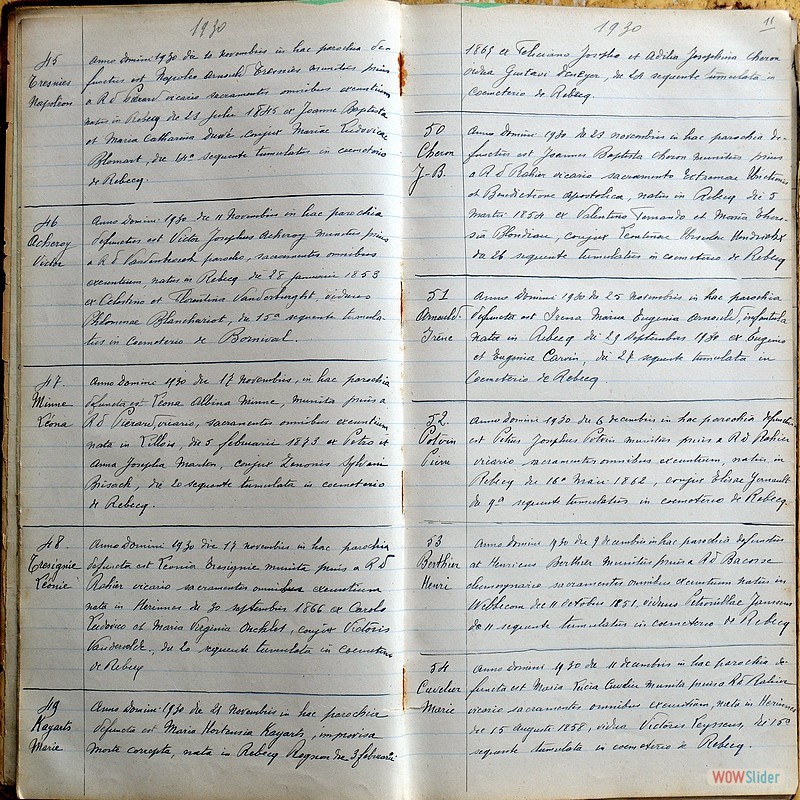 1930
45
Eresnies
Napoléon
Anno Domini 1930 die 10 novembris in hac parochia de-
functus est Napoleo Arnould Eresnies munitus prius
a R.d Pierard vicario sacramentis omnibus exeuntium
natus in Rebecq die 23 julii 1845 ex Joanne Baptista
et Maria Catharina conjux Mariae Ludovicae
Blomart, die 14a sequente tumulatus in coemeterio
de Rebecq.
46
Ackeroy
Victor
Anno Domini 1930 die 11 Novembris in hac parochia
defunctus est Victor Josephus Ackeroy munitus prius
a R.d Vandenbosch parocho, sacramentis omnibus
exeuntium, natus in Rebecq die 28 januarii 1853
ex Celestino et Florentina Vanderburght, viduus
Philomenae Blanchariot, die 15a sequente tumula-
tus in coemeterio de Bornival.
47
Minne
Léona
Anno Domini 1930 die 17 Novembris, in hac parochia
defuncta est Leona Albina Minne, munita prius a
R.d Pierard vicario, sacramentis omnibus exeuntium
nata in Lillois, die 5 februarii 1873 ex Petro et
Anna Josepha Marton, conjux Zenonis Sylvani
Brisack, die 20 sequente tumulata in coemeterio
de Rebecq.
48
Léonie
Anno Domini 1930 die 17 novembris in hac parochia
defuncta est Leonia munita prius a R.d
Rahier vicario sacramentis omnibus exeuntium
nata in Herinnes die 30 septembris 1866 ex Carolo
Ludovico et Maria Virginia conjux Victoris
Vandervelde, die 20 sequente tumulata in coemeterio
de Rebecq
49
Kayarts
Marie
Anno Domini 1930 die 21 Novembris in hac parochia
defuncta est Maria Hortensia Kayarts, improvisa
morte correpta, nata in Rebecq Rognon die 3 februarii
1930
11
1869 ex Feliciano Josepho et Adelia Josephina Cheron
vidua Gustavi Deneyer, die 24 sequente tumulata in
coemeterio de Rebecq.
50
Cheron
J-B.
Anno Domini 1930 die 23 novembris in hac parochia de-
functus est Joannes Baptista Cheron munitus prius
a R.d Rahier vicario sacramento Extremae Unctionis
et Benedictione Apostolica, natus in Rebecq die 5
martii 1854 ex Valentino Fernando et Maria There-
sia Blondiau, conjux Leontinae Ursulae Hendrickx
die 26 sequente tumulatus in coemeterio de Rebecq
51
Arnould
Irène
Anno Domini 1930 die 25 novembris in hac parochia
defuncta est Irena Maria Eugenia Arnould, infantula
nata in Rebecq die 29 septembris 1930 ex Eugenio
et Eugenia Carvin, die 27 sequente tumulata in
Coemeterio de Rebecq.
52
Potvin
Pierre
Anno Domini 1930 die 6 decembris in hac parochia defunctus
est Petrus Josephus Potvin munitus prius a R.d Rahier
vicario sacramentis omnibus exeuntium, natus in
Rebecq die 16a Maii 1862, conjux Elisae Jernault
die 9a sequente tumulatus in coemeterio de Rebecq.
53
Berthier
Henri
Anno Domini 1930 die 9 decembris in hac parochia defunctus
est Henricus Berthier munitus prius a R.d Bacosse
eleemosynario sacramentis omnibus exeuntium natus in
Webbecom die 11 octobris 1851, viduus Petronillae Janssens
die 11 sequente tumulatus in coemeterio de Rebecq
54
Cuvelier
Marie
Anno Domini 1930 die 11 decembris in hac parochia de-
functa est Maria Lucia Cuvelier munita prius a R.d Rahier
vicario sacramentis omnibus exeuntium, nata in Herinnes
die 15 augusti 1858, vidua Victoris Leyssens, die 15a
sequente tumulata in coemeterio de Rebecq.
WOWSlider